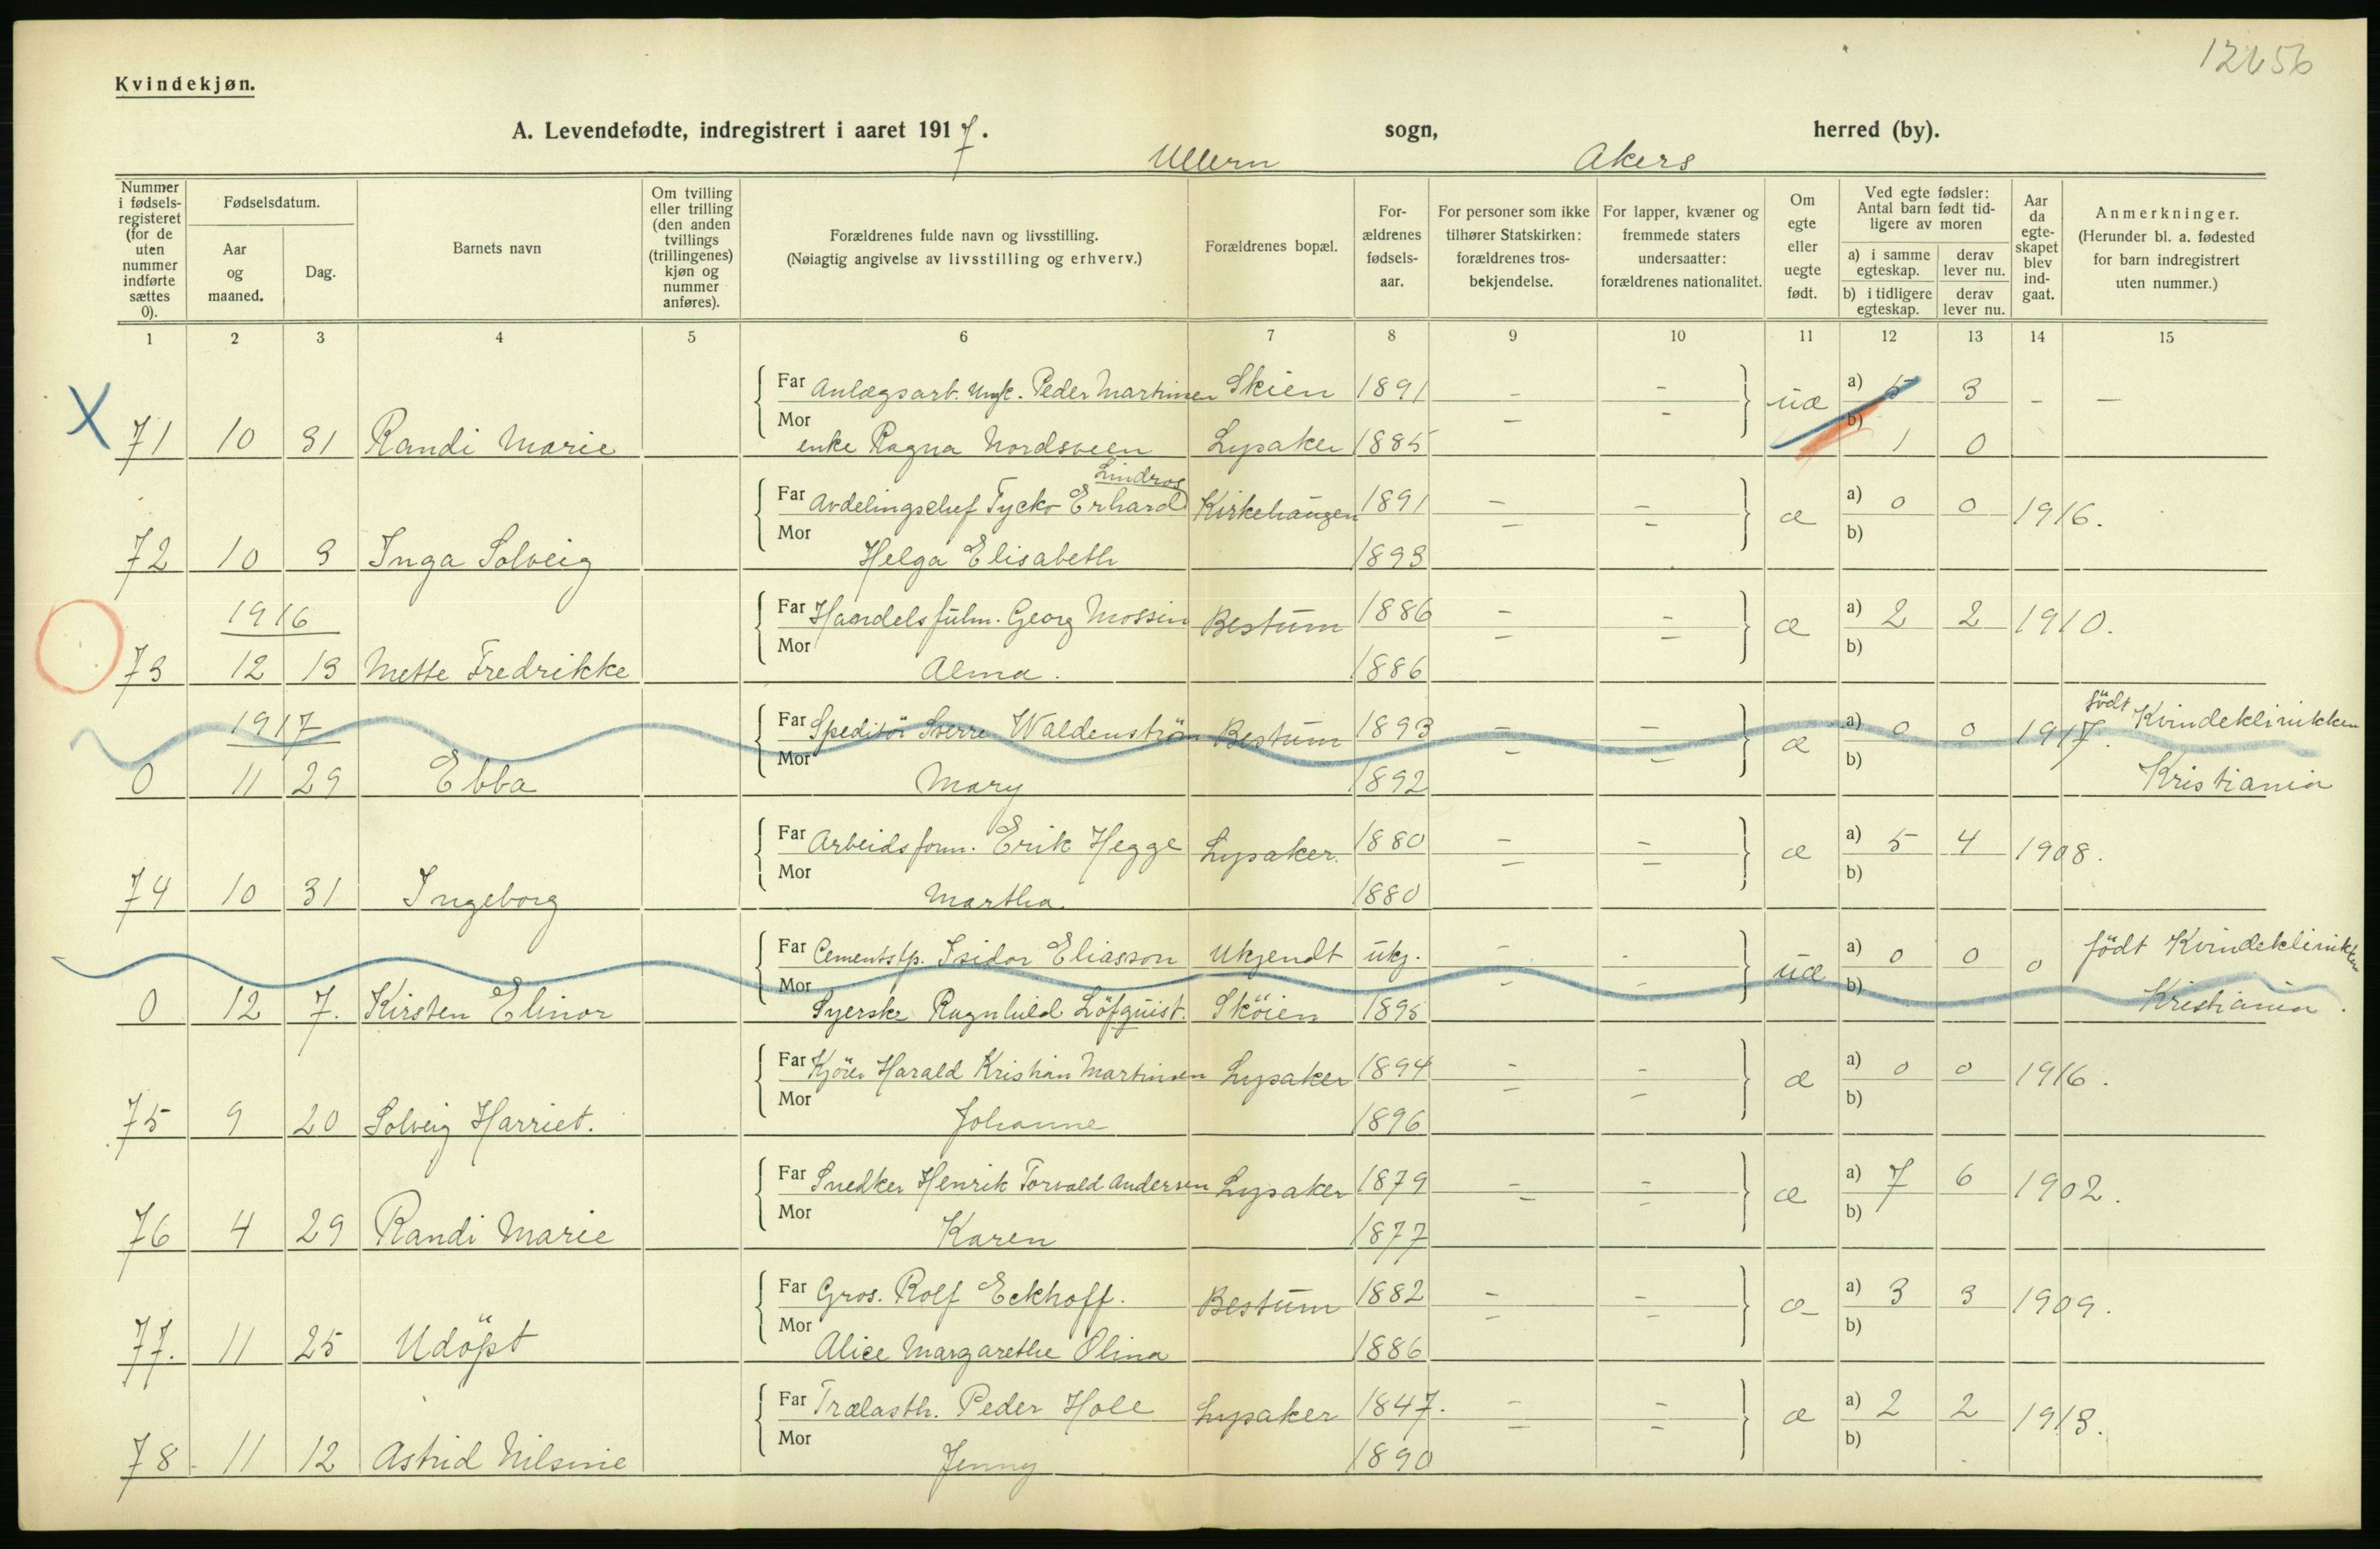 12656
Kvindekjøn.
A. Levendefødte, indregistrert i aaret 1917. Ullern sogn, Akers herred (by).
Nummer i fødsels-registeret (for de uten nummer indførte sættes 0).
Fødselsdatum.
Aar og maaned.
Dag.
Barnets navn
Om tvilling eller trilling (den anden tvillings (trillingenes) kjøn og nummer anføres).
Forældrenes fulde navn og livsstilling.
(Nøiagtig angivelse av livsstilling og erhverv.)
Forældrenes bopæl.
For-ældrenes fødsels-aar.
For personer som ikke tilhører Statskirken: forældrenes tros-bekjendelse.
For lapper, kvæner og fremmede staters undersaatter: forældrenes nationalitet.
Om egte eller uegte født.
Ved egte fødsler: Antal barn født tid-ligere av moren
a) i samme egteskap.
derav lever nu.
b) i tidligere egteskap.
derav lever nu.
Aar da egte-skapet blev ind-gaat.
Anmerkninger.
(Herunder bl. a. fødested for barn indregistrert uten nummer.)
1 2 3 4 5 6 7 8 9 10 11 12 13 14 15
X
Far Anlægsarb. Ungk. Peder Martinsen Skien 1891 - - uæ a) 5 3 - -
71 10 31 Randi Marie Mor enke Ragna Nordsveen Lysaker 1885 - - b) 1 0
Lindros
Far Avdelingschef Tycko Erhard Kirkehaugen 1891 - - æ a) 0 0 1916.
72 10 3 Inga Solveig Mor Helga Elisabeth 1893 - - b)
1916 Far Handelsfulm. Georg Mossin Bestum 1886 - - æ a) 2 2 1910.
73 12 13 Mette Fredrikke Mor Alma. 1886 - - b)
1917 Far Speditör Sverre Waldenström Bestum 1893 - - æ a) 0 0 1917. födt Kvindeklinikken
0 11 29 Ebba Mor Mary 1892 - - b) Kristiania
Far Arbeidsform. Erik Hegge Lysaker. 1880 - - æ a) 5 4 1908.
74 10 31 Ingeborg Mor Martha 1880 - - b)
Far Cementstp. Isidor Eliasson Ukjendt ukj. - - uæ a) 0 0 0 födt Kvindeklinikken
0 12 7. Kirsten Elinor Mor Syerske Ragnhild Löfquist. Sköien 1895 - - b) Kristiania.
Far Kjörer Harald Kristian Martinsen Lysaker 1894 - - æ a) 0 0 1916.
75 9 20 Solveig Harriet. Mor Johanne 1896 - - b)
Far Snedker Henrik Torvald Andersen Lysaker 1879 - - æ a) 7 6 1902.
76 4 29 Randi Marie Mor Karen 1877 - - b)
Far Gros. Rolf Eckhoff. Bestum 1882 - - æ a) 3 3 1909.
77. 11 25 Udöpt Mor Alice Margarethe Olina 1886 - - b)
Far Trælasth. Peder Hole Lysaker 1847. - - æ a) 2 2 1913.
78 11 12 Astrid Nilsine Mor Jenny 1890 - - b)